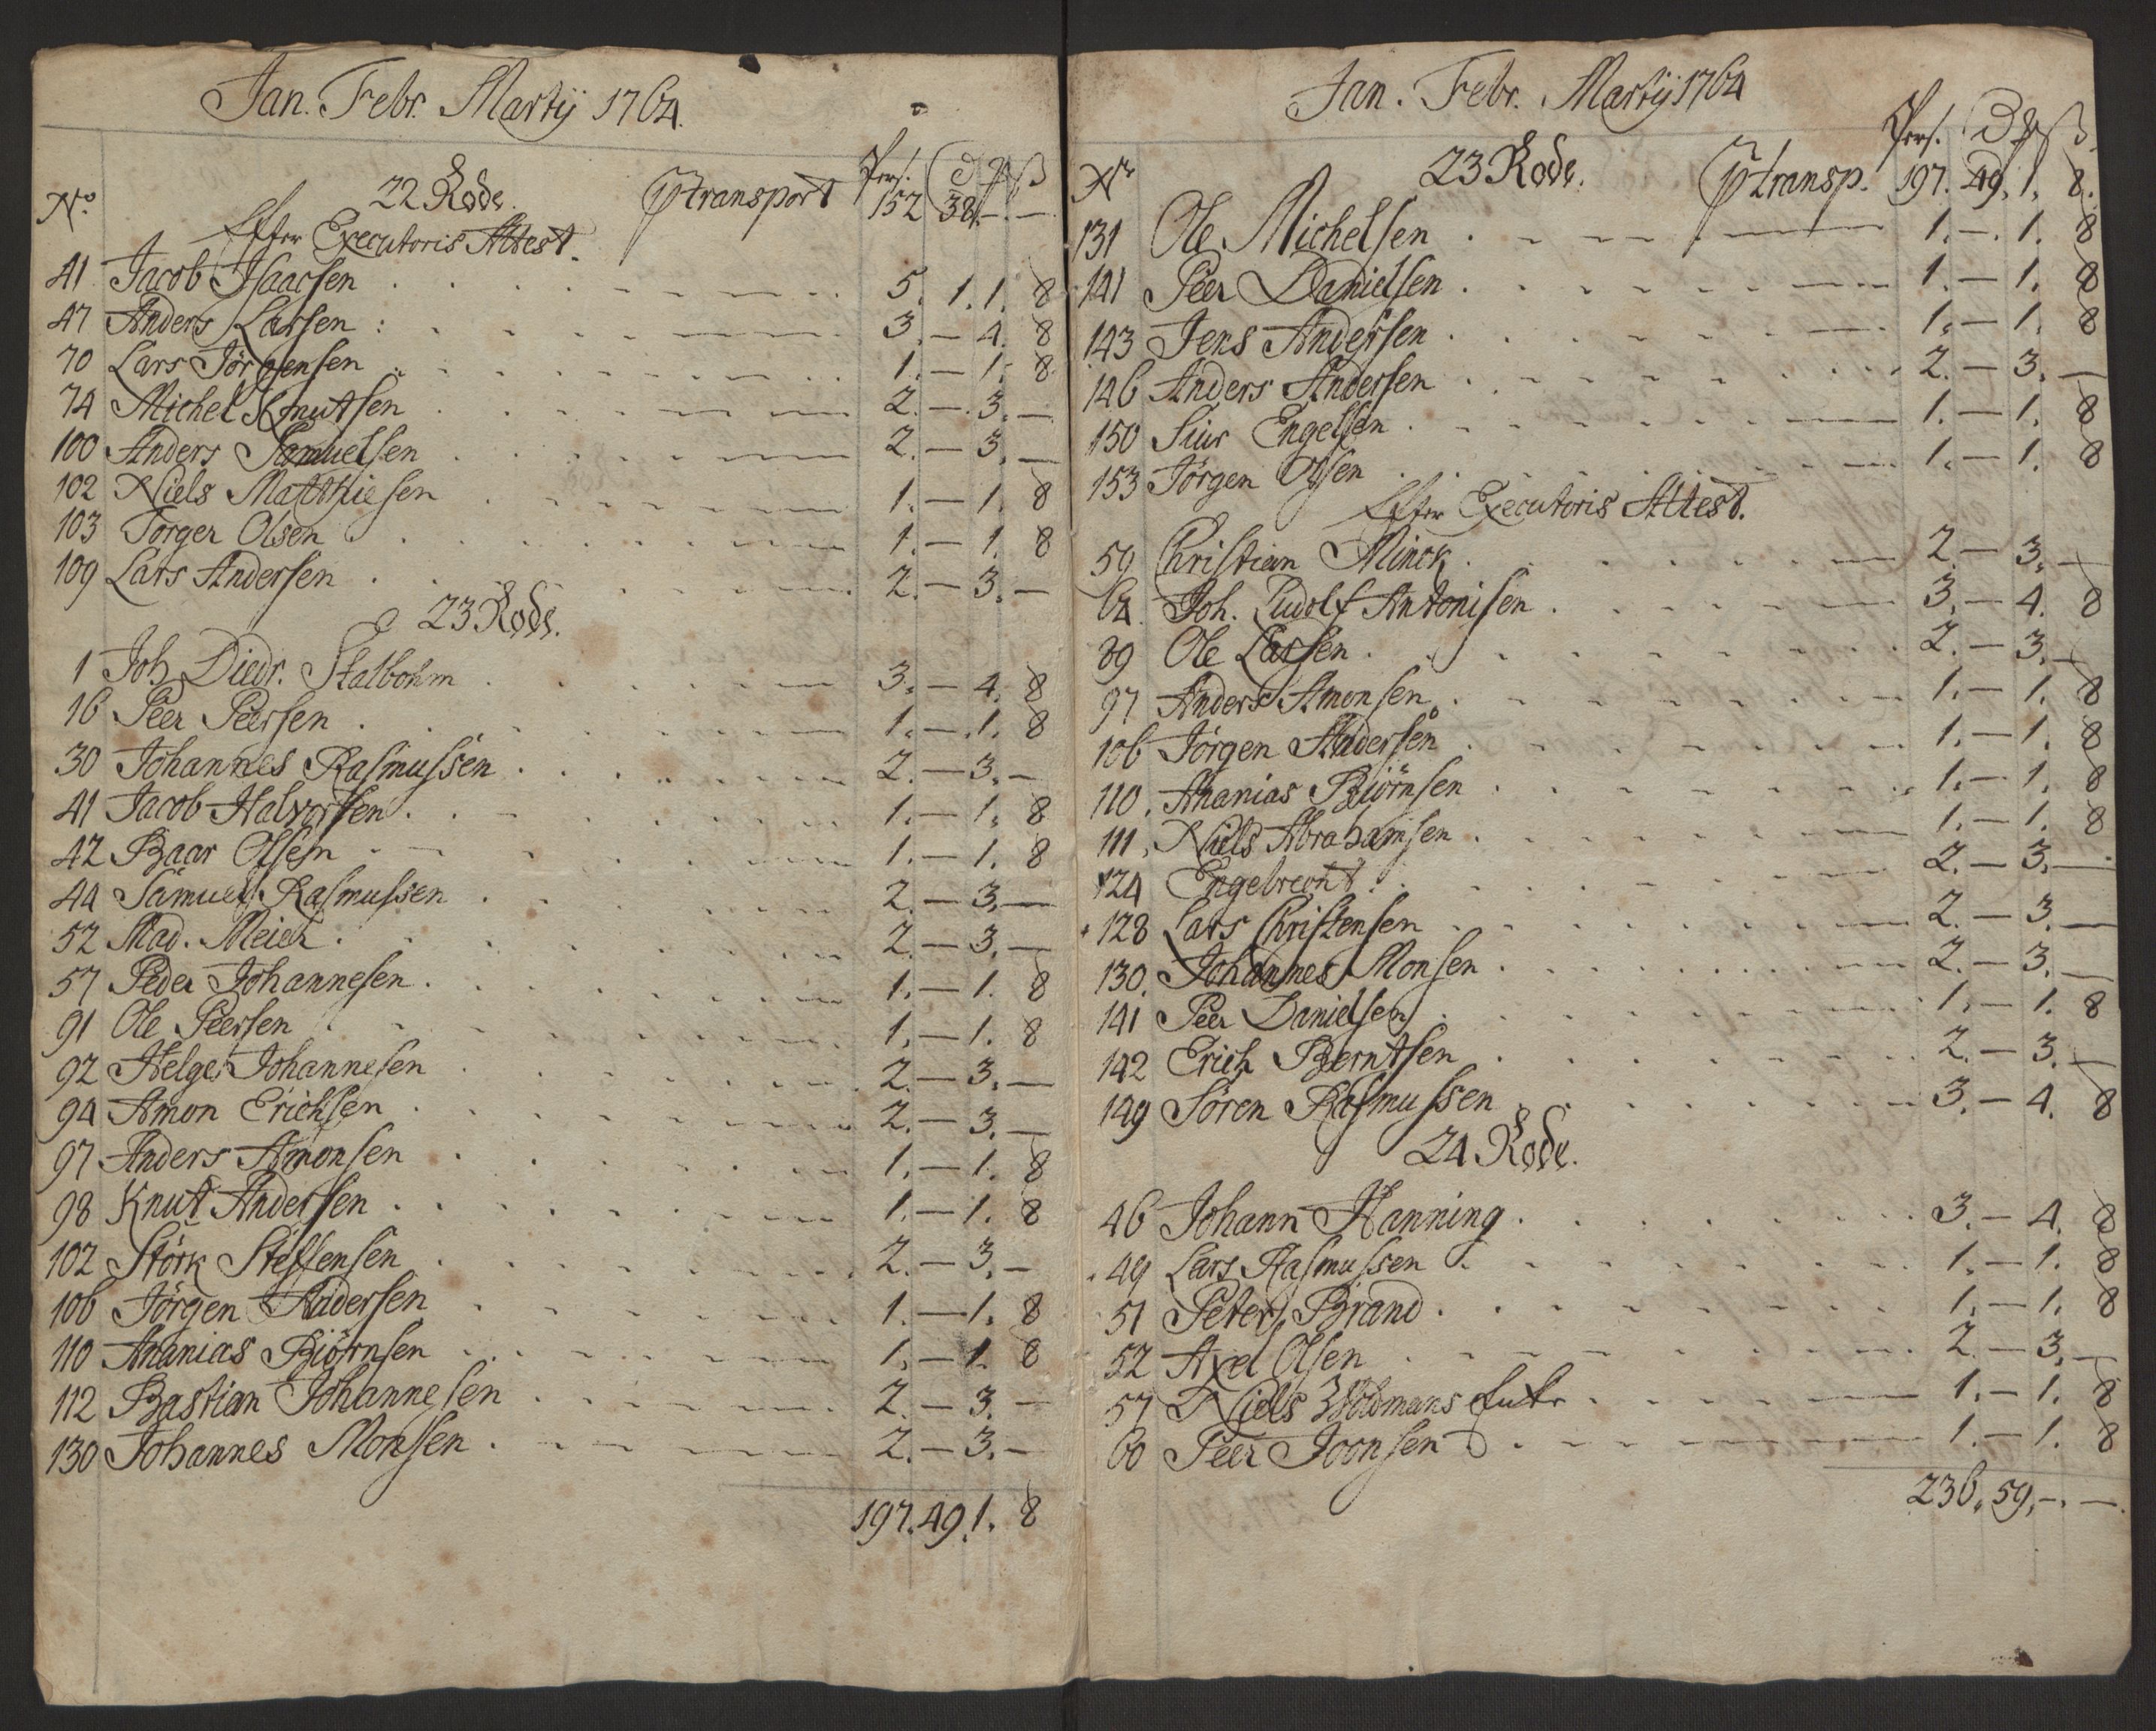 Jan. Febr. Martij 1764.
Pers. Rd mk ß
No. 22 Rode. p transport 152 38. - -
Efter Executoris Attest.
41 Jacob Isaacsen 5. 1. 1. 8
47 Anders Larsen 3. - 4. 8
70 Lars Jörgensen 1. - 1. 8
74 Michel Knutsen 2. - 3. -
100 Anders Samuelsen 2. - 3. -
102 Niels Matthiesen 1. - 1. 8
103 Torger Olsen 1. - 1. 8
109 Lars Andersen 2. - 3. -
23 Rode.
1 Joh. Diedr. Stalbohm 3. - 4. 8
16 Peer Peersen 1. - 1. 8
30 Johannes Rasmussen 2. - 3. -
41 Jacob Halvorsen 1. - 1. 8
42 Baar Olsen 1. - 1. 8
44 Samuel Rasmussen 2. - 3. -
52 Mad. Meier 2. - 3. -
57 Peder Johannesen 1. - 1. 8
91 Ole Peersen 1. - 1. 8
92 Helge Johannesen 2. - 3. -
94 Amon Erichsen 2. - 3. -
97 Anders Amonsen 1. - 1. 8
98 Knut Andersen 1. - 1. 8
102 Störk Steffensen 2. - 3. -
106 Jörgen Andersen 1. - 1. 8
110 Ananias Biörnsen 1. - 1. 8
112 Bastian Johannesen 2. - 3. -
130 Johannes Monsen 2. - 3. -
197. 49. 1. 8
Jan. Febr. Martij 1764
Pers. Rd mk ß
No 23 Rode. p transp. 197. 49. 1. 8.
131 Ole Michelsen 1. - 1. 8
141 Peer Danielsen 1. - 1. 8
143 Jens Andersen 1. - 1. 8
146 Anders Andersen 2. - 3. -
150 Siur Engelsen 1. - 1. 8
153 Jörgen Olsen 1. - 1. 8
Efter Executoris Attest.
59 Christian Minck 2. - 3. -
64. Joh. Ludolf Antonisen 3. - 4. 8
89 Ole Larsen 2. - 3. -
97 Anders Amonsen 1. - 1. 8
106 Jörgen Andersen 1. - 1. 8
110. Ananias Biörnsen 1. - 1. 8
111. Niels Abrahamsen 1. - 1. 8
124 Engebrecht 2. - 3. -
128 Lars Christensen 2. - 3. -
130. Johannes Monsen 2. - 3. -
141 Peer Danielsen 1. - 1. 8
142 Erich Berntsen 2. - 3. -
149 Sören Rasmussen 3. - 4. 8
24 Rode.
46 Johann Hanning 3. - 4. 8
49 Lars Rasmussen 1. - 1. 8
51 Peter Brand 1. - 1. 8
52 Axel Olsen 2. - 3. -
57 Niels Woldmans Enke 1. - 1. 8
60 Peer Joonsen 1. - 1. 8
236. 59. - -